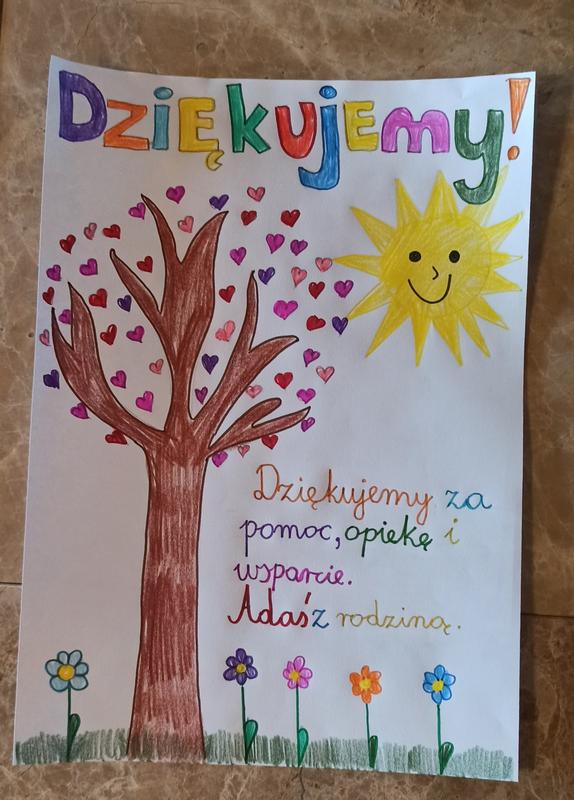 Dziękujemy!
Dziękujemy za
pomoc, opiekę i
wsparcie.
Adaś z rodziną.